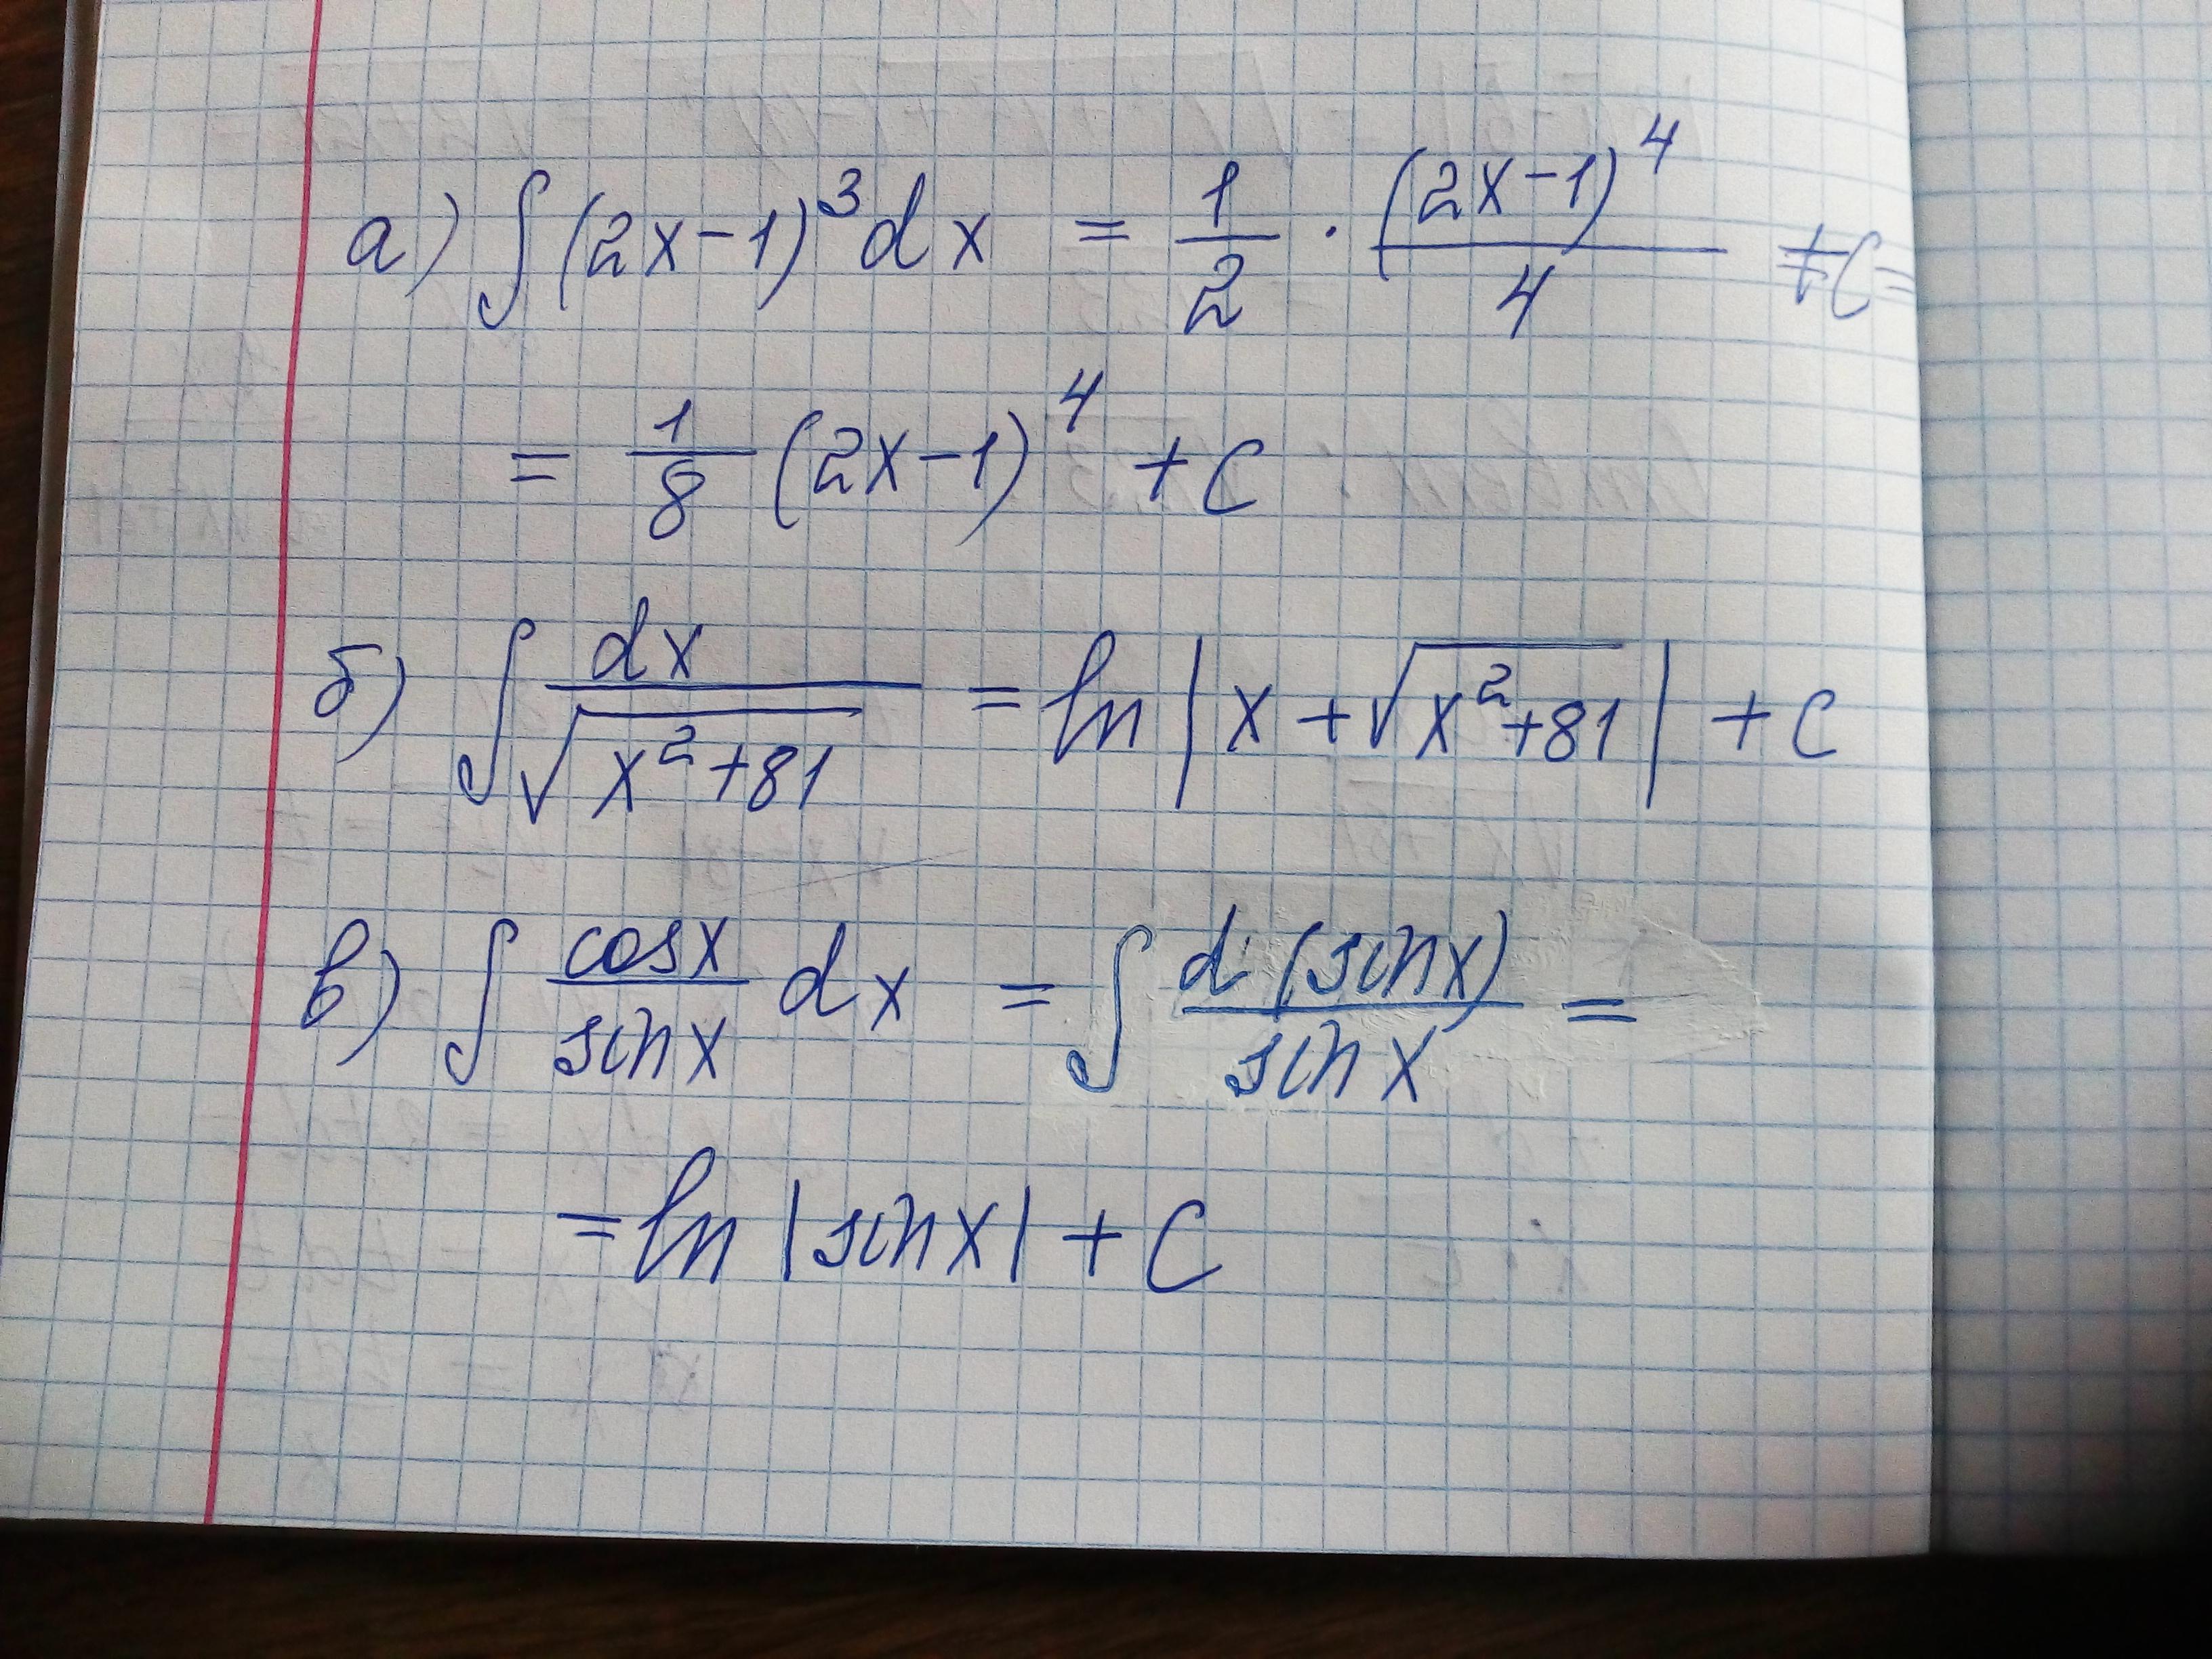 а) ∫(2x-1)³dx = 1/2 · (2x-1)⁴/4 + C =
= 1/8 (2x-1)⁴ + C
б) ∫ dx/√(x²+81) = ln |x + √(x²+81)| + C
в) ∫ cosx/sinx dx = ∫ d(sinx)/sinx =
= ln |sinx| + C